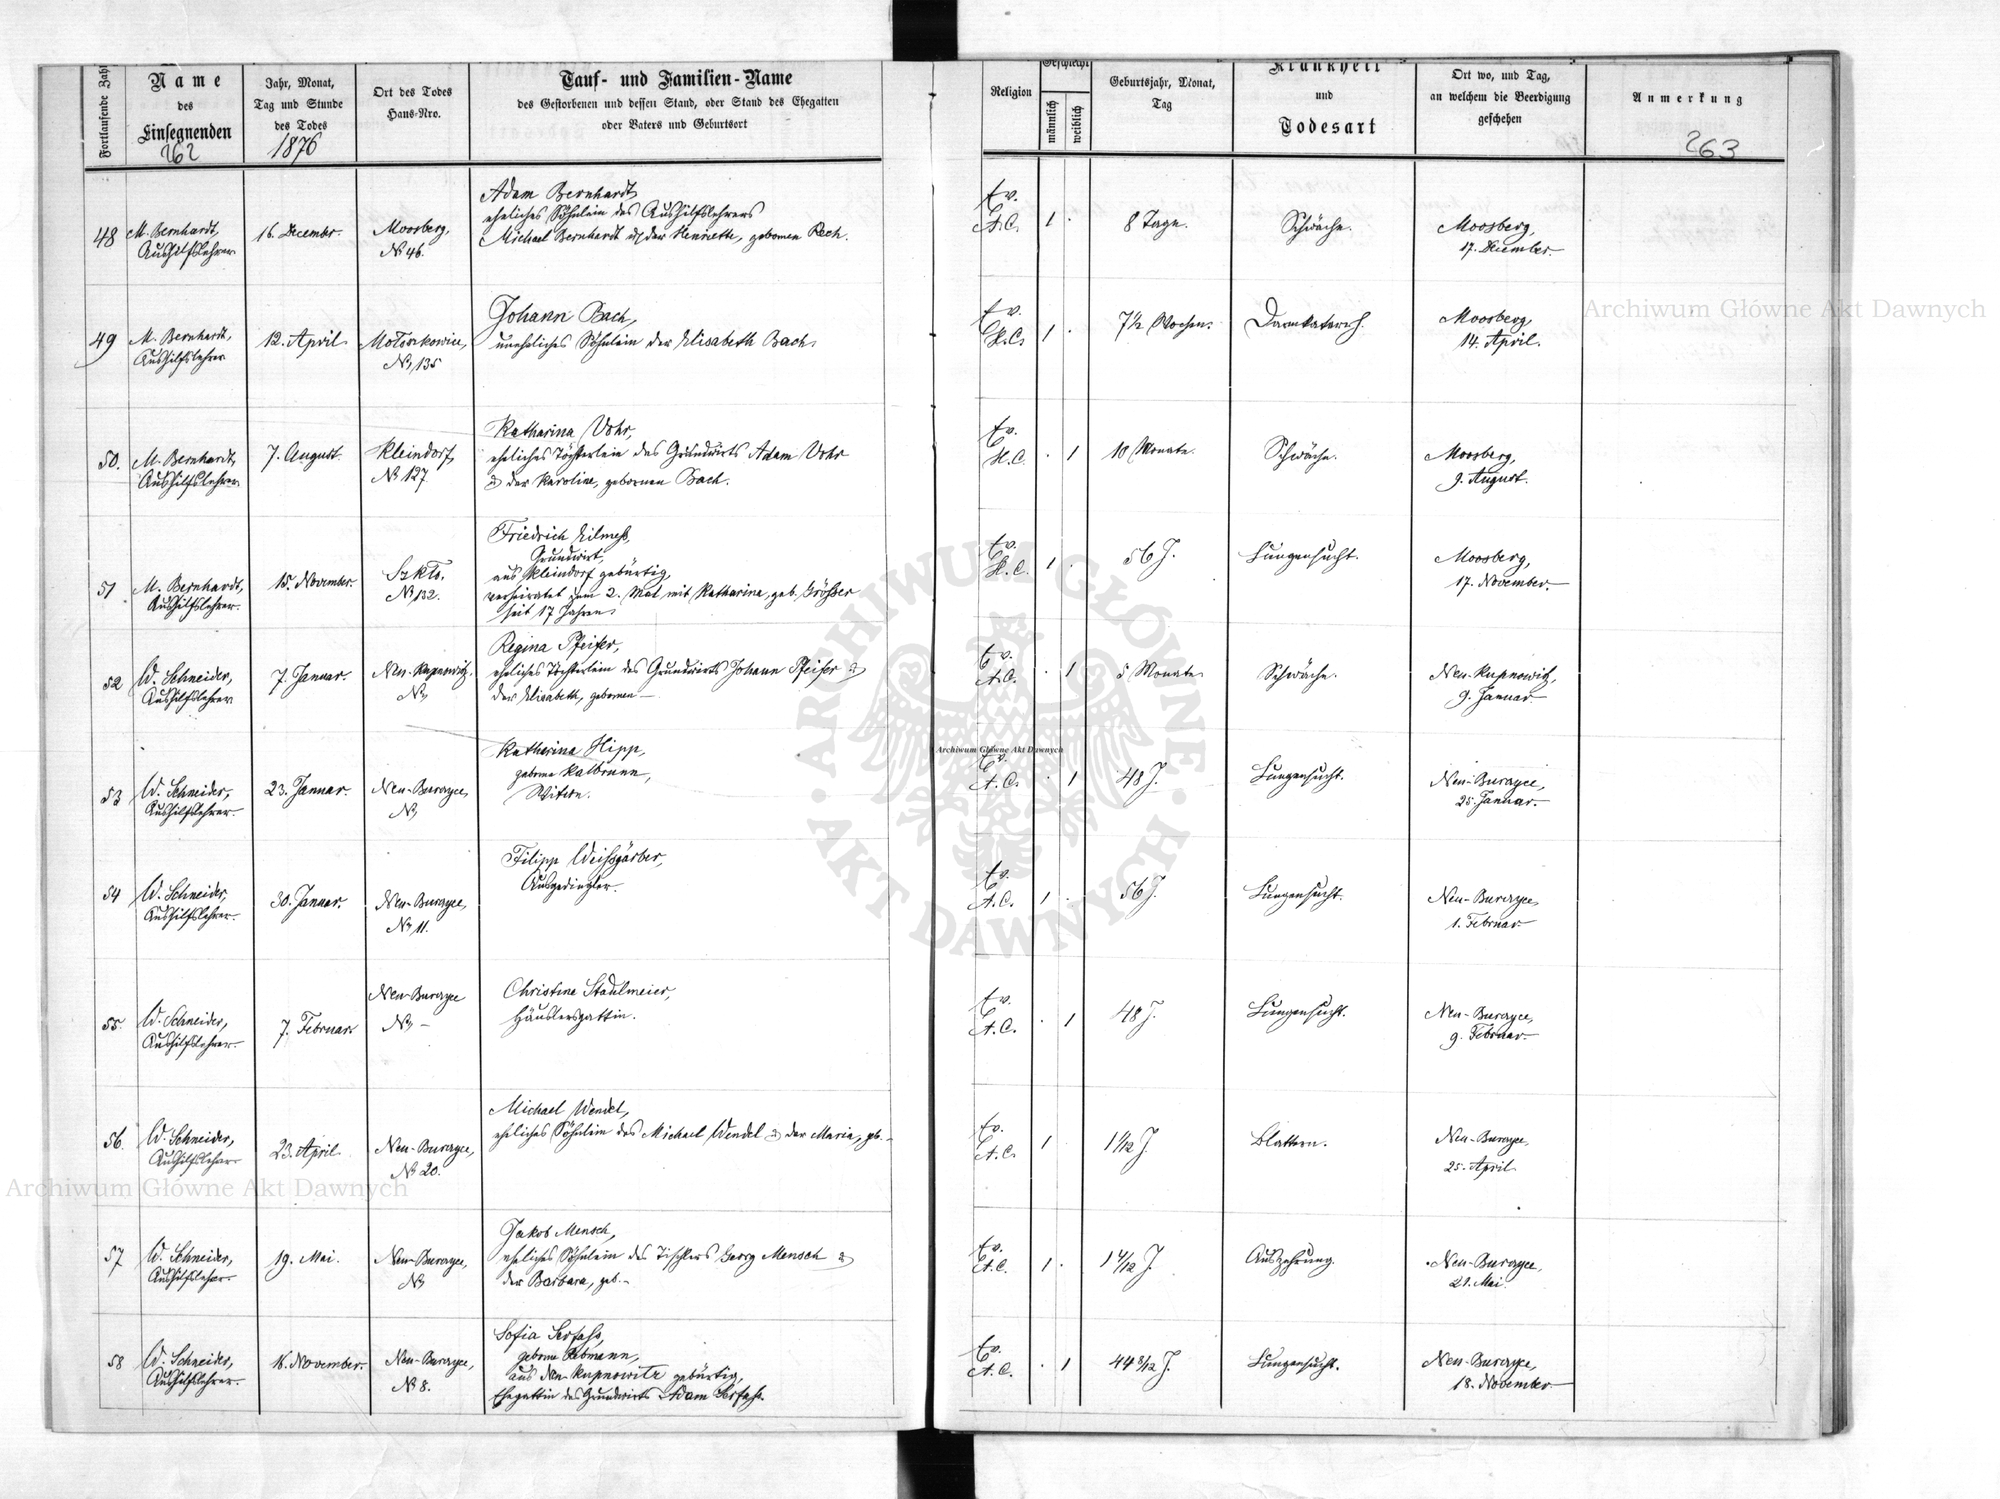 Fortlaufende Zahl
Name
des
Einsegnenden
262
Jahr, Monat,
Tag und Stunde
des Todes
1876
Ort des Todes
Haus-Nro.
Tauf- und Familien-Name
des Gestorbenen und dessen Stand, oder Stand des Ehegatten
oder Vaters und Geburtsort
Religion
Geschlecht
männlich
weiblich
Geburtsjahr, Monat,
Tag
Krankheit
und
Todesart
Ort wo, und Tag,
an welchem die Beerdigung
geschehen
Anmerkung
263
48
M. Bernhardt,
Aushilfslehrer
16. December.
Moosberg,
No 46.
Adam Bernhardt,
eheliches Söhnlein des Aushilfslehrers
Michael Bernhardt u. der Henriette, gebornen Rech.
Ev.
A.C.
1 .
8 Tage.
Schwäche.
Moosberg,
17. December.
49
M. Bernhardt,
Aushilfslehrer
12. April
No 135
Johann Bach,
uneheliches Söhnlein der Elisabeth Bach.
Ev.
H.C.
1 .
7 1/2 Wochen.
Darmkatarrh.
Moosberg,
14. April.
50.
M. Bernhardt,
Aushilfslehrer
7. August.
Kleindorf,
No 127
Katharina Vohr,
eheliches Töchterlein des Grundwirts Adam Vohr
u. der Karoline, gebornen Bach.
Ev.
H.C.
. 1
10 Monate.
Schwäche.
Moosberg,
9. August.
51.
M. Bernhardt,
Aushilfslehrer.
15. November.
Szkło.
No 132.
Friedrich Eilmess,
Grundwirt,
aus Kleindorf gebürtig,
verheiratet zum 2. Mal mit Katharina, geb. Größer
seit 17 Jahren
Ev.
H.C.
1 .
56 J.
Lungensucht.
Moosberg,
17. November.
52
W. Schneider,
Aushilfslehrer
7. Januar.
Neu-Kupnowitz.
No
Regina Pfeifer,
eheliches Töchterlein des Grundwirts Johann Pfeifer u.
der Elisabeth, gebornen —
Ev.
A.C.
. 1
5 Monate
Schwäche.
Neu-Kupnowitz,
9. Januar.
53
W. Schneider,
Aushilfslehrer.
23. Januar.
Neu-Burczyce,
No
Katharina Hipp,
geborne Kalbrunn,
Witwe.
Ev.
A.C.
. 1
48 J.
Lungensucht.
Neu-Burczyce,
25. Januar.
54
W. Schneider,
Aushilfslehrer.
30. Januar.
Neu-Burczyce,
No 11.
Filipp Weissgärber,
Ausgedingler.
Ev.
A.C.
1 .
56 J.
Lungensucht.
Neu-Burczyce,
1. Februar
55.
W. Schneider,
Aushilfslehrer.
7. Februar
Neu-Burczyce
No —
Christine Stadlmeier,
Häuslersgattin.
Ev.
A.C.
. 1
48 J.
Lungensucht.
Neu-Burczyce,
9. Februar.
56.
W. Schneider,
Aushilfslehrer
23. April.
Neu-Burczyce,
No 20.
Michael Wendel,
eheliches Söhnlein des Michael Wendel u. der Maria, geb. -
Ev.
A.C.
1
1 1/12 J.
Blattern.
Neu-Burczyce,
25. April.
57
W. Schneider,
Aushilfslehrer.
19. Mai.
Neu-Burczyce,
No
Jakob Mensch,
eheliches Söhnlein des Tischlers Georg Mensch u.
der Barbara, geb. -
Ev.
A.C.
1 .
1 4/12 J.
Auszehrung.
Neu-Burczyce,
21. Mai.
58
W. Schneider,
Aushilfslehrer.
16. November.
Neu-Burczyce,
No 8.
Sofia Serfass,
geborne Rebmann,
aus Neu-Kupnowitz gebürtig,
Ehegattin des Grundwirts Adam Serfass.
Ev.
A.C.
. 1
44 8/12 J.
Lungensucht.
Neu-Burczyce,
18. November
Archiwum Główne Akt Dawnych
Archiwum Główne Akt Dawnych
Archiwum Główne Akt Dawnych
ARCHIWUM GŁÓWNE · AKT DAWNYCH ·